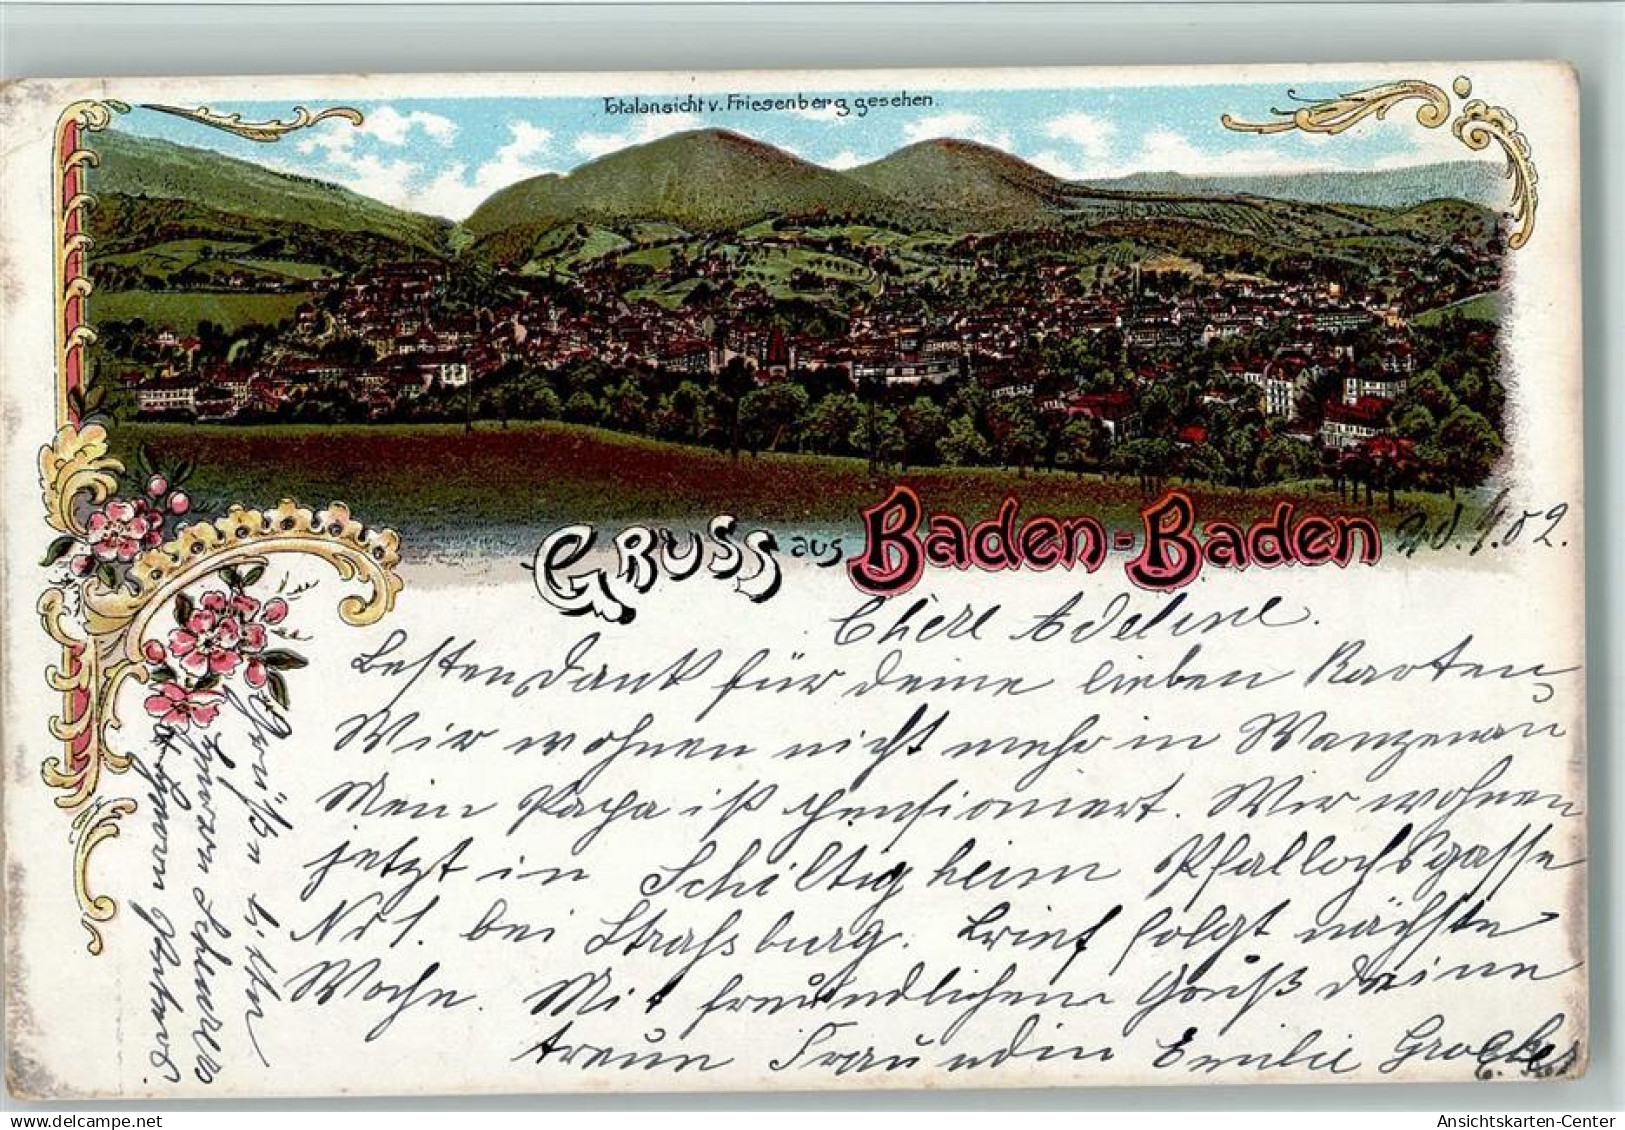 Totalansicht v. Friesenberg gesehen.
Gruss aus Baden-Baden
02.
Chere Adeline.
Besten Dank für deine lieben Karten,
Wir wohnen nicht mehr in Wanzenau
Mein Papa ist pensioniert. Wir wohnen
jetzt in Schiltigheim
No 1. bei Straßburg. Brief folgt nächste
Woche. Mit freundlichem Gruß deine
treue Freundin Emilie
Grüße
Ansichtskarten-Center